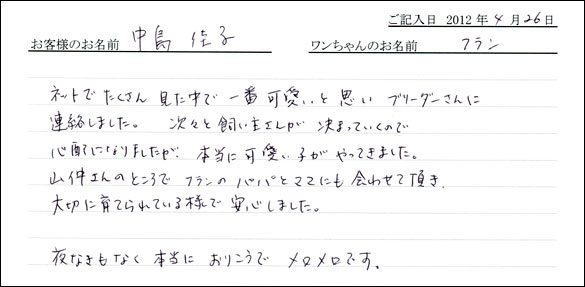 ご記入日 2012年4月26日
お客様のお名前 中島 佳子 ワンちゃんのお名前 フラン
ネットでたくさん見た中で一番可愛いと思いブリーダーさんに
連絡しました。次々と飼い主さんが決まっていくので
心配になりましたが、本当に可愛い子がやってきました。
山件さんのところでフランのパパとママにも会わせて頂き、
大切に育てられている様で安心しました。
夜なきもなく本当におりこうでメロメロです。